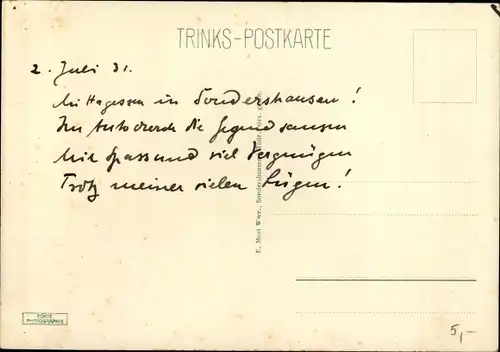 TRINKS-POSTKARTE
2. Juli 31.
Mittagessen in Sondershausen!
Im Auto durch die Gegend sausen
Mit Spass und viel Vergnügen
Trotz meiner vielen Lügen!
E. Mest Wwe., Sondershausen
ECHTE
PHOTOGRAPHIE
5,-